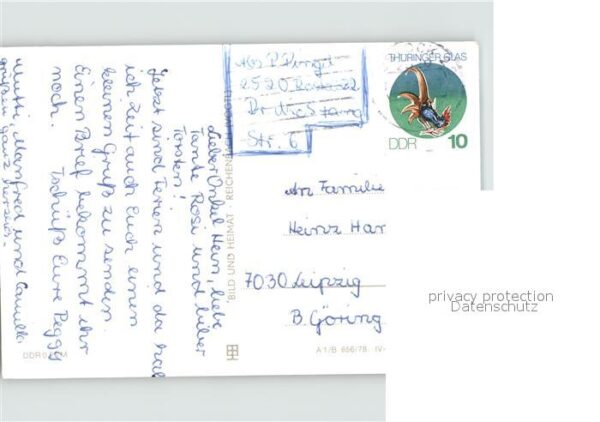 Lieber Onkel Hein, liebe
Tante Rosi und lieber
Torsten!
Jetzt sind Ferien und da hab
ich Zeit auch Euch einen
kleinen Gruß zu senden.
Einen Brief bekommt ihr
noch. Tschüß Eure Peggy
Mutti, Manfred und
grüßen ganz
Abs. P.
2520 Rostock
Str. 6
THÜRINGER GLAS
DDR 10
An Familie
Heinz Har
7030 Leipzig
B. Göring
BILD UND HEIMAT REICHENB
A 1/B 656/78 IV-
DDR 0,20 M
privacy protection
Datenschutz